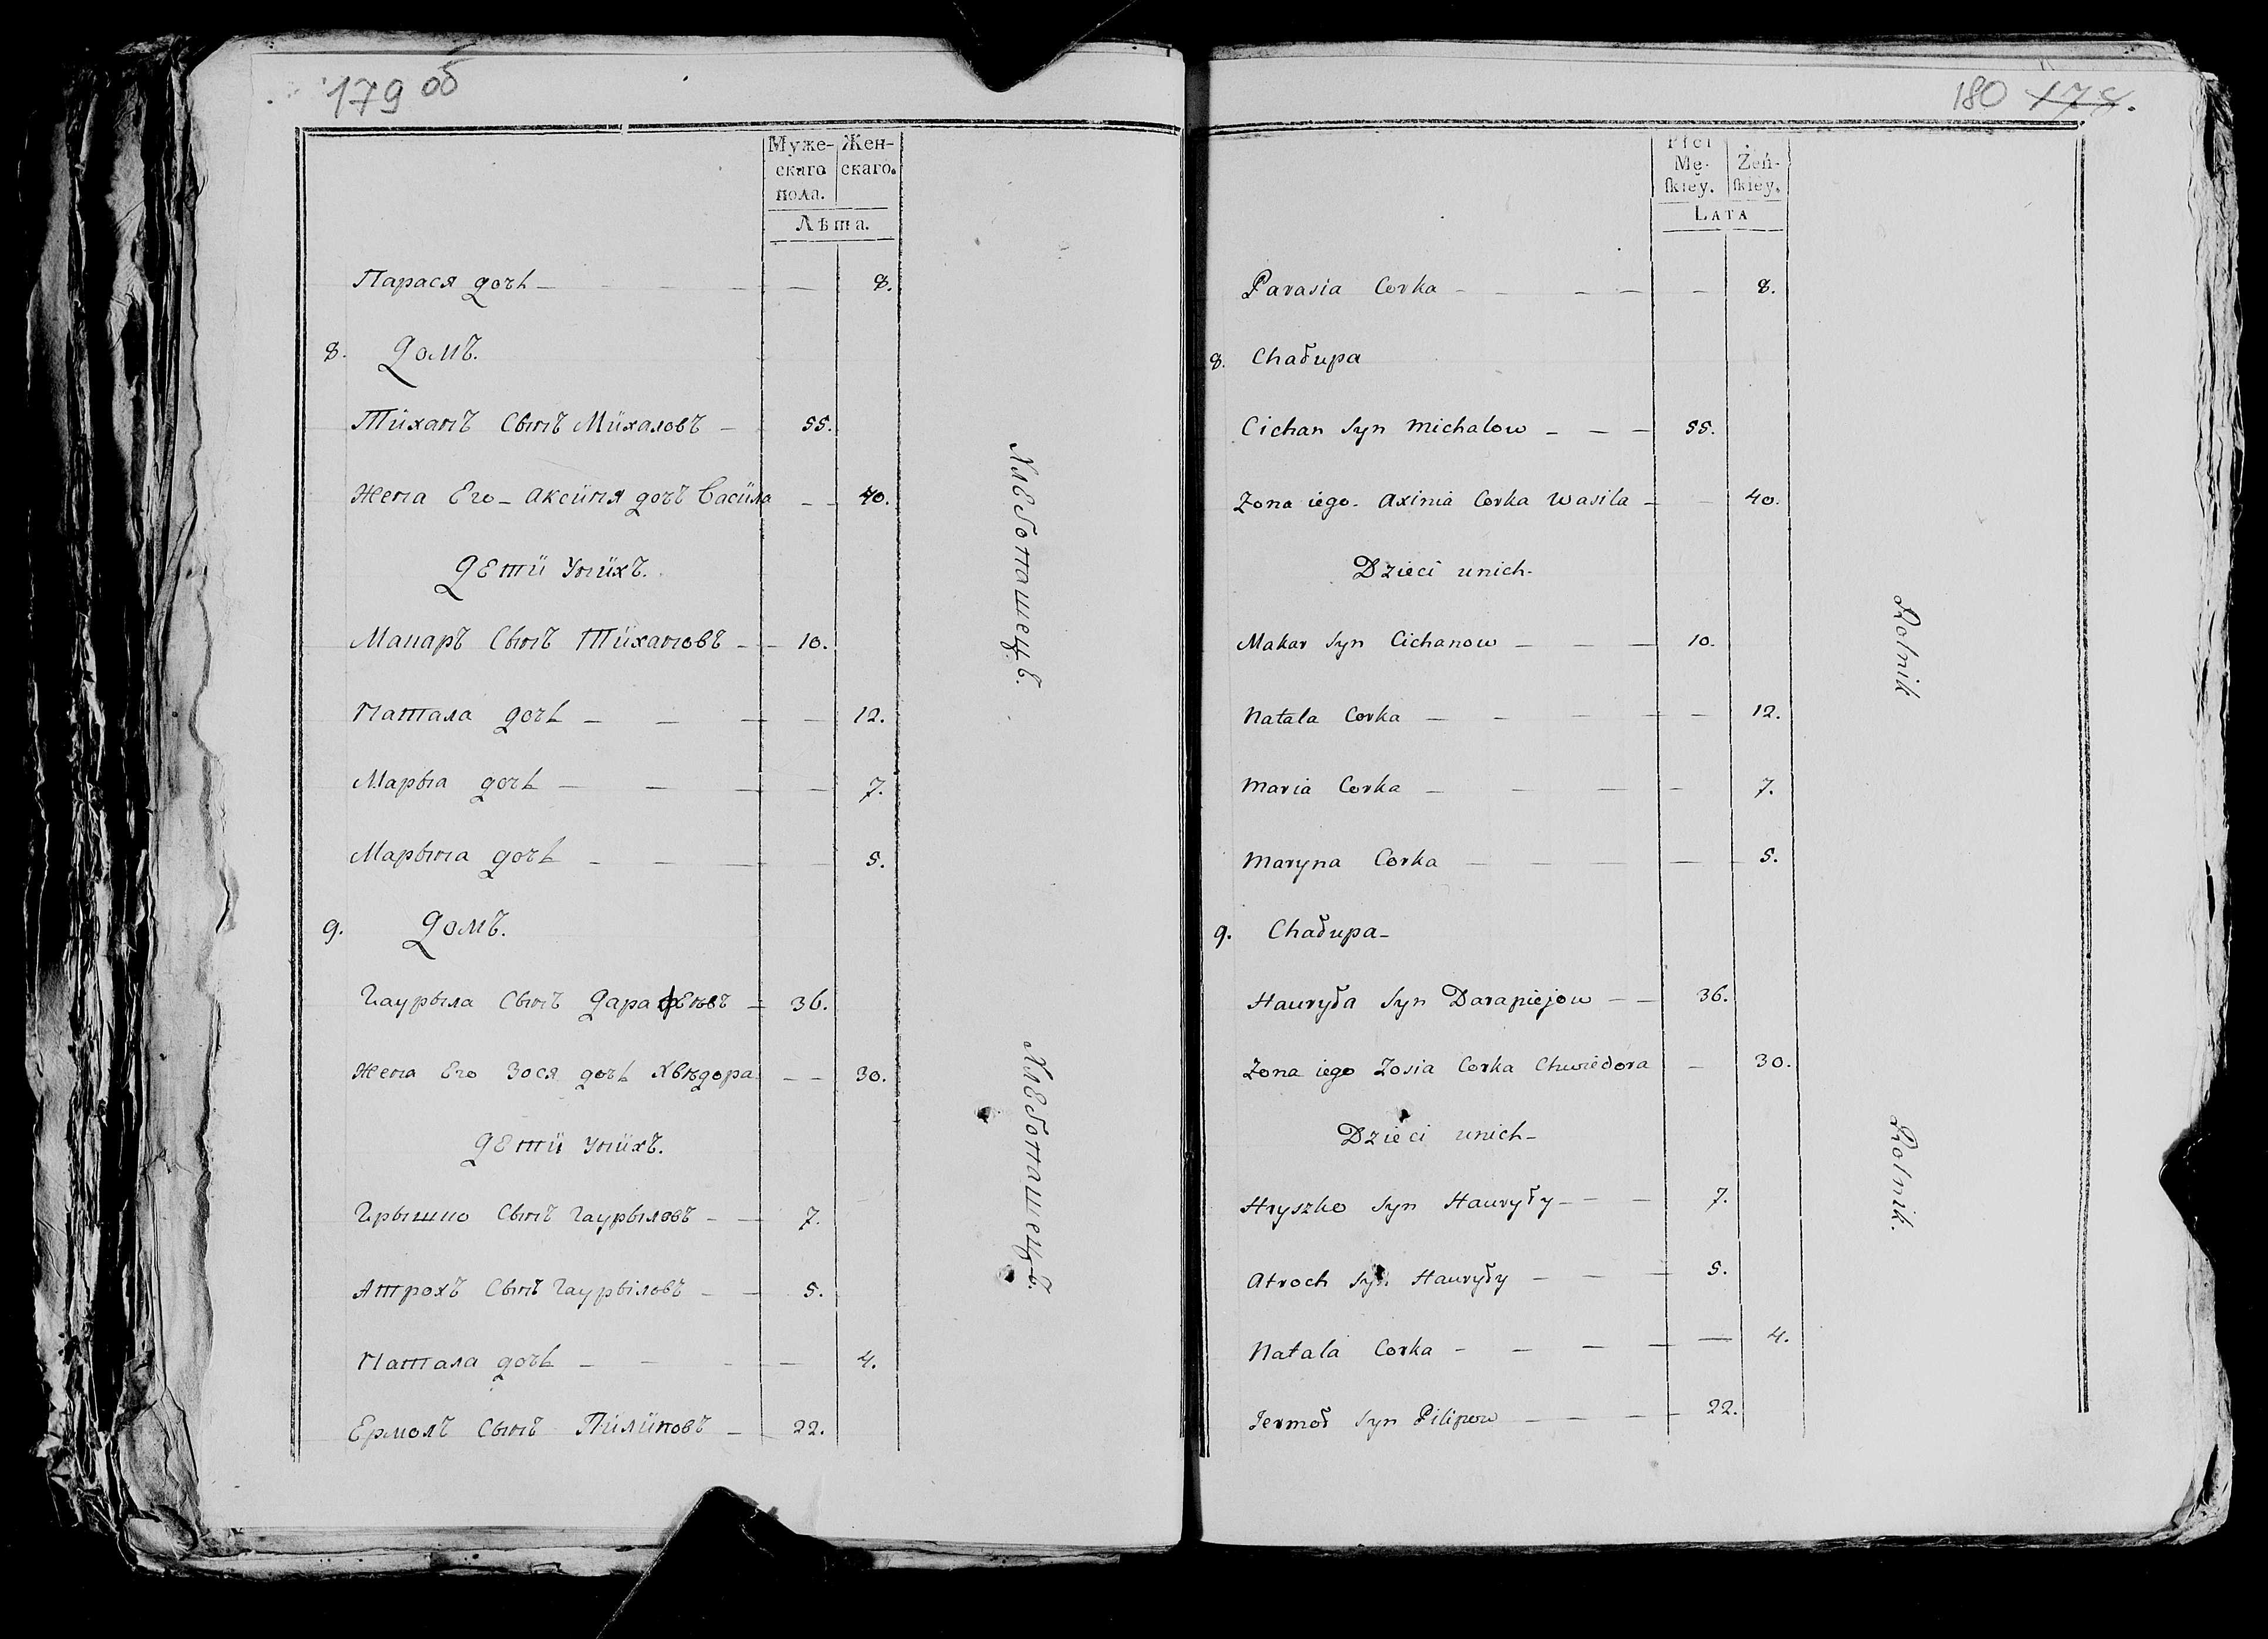 179 об
Муже-
скаго
пола.
Жен-
скаго.
Лѣта.
Парася дочь — 8.
8. Домъ.
Тиханъ Сынъ Михаловъ — 55.
Жена Его — Аксиня дочъ Васила — 40.
Дети Унихъ.
Макаръ Сынъ Тихановъ — 10.
Натала дочь — 12.
Марыа дочь — 7.
Марына дочь — 5.
Хлебопашецъ.
9. Домъ.
Гаурыла Сынъ Дарафѣевъ — 36.
Жена Его Зося дочь Хвѣдора — 30.
Дети Унихъ.
Грышко Сынъ Гаурыловъ — 7.
Атрохъ Сынъ Гаурыловъ — 5.
Натала дочь — 4.
Ермолъ Сынъ Пилиповъ — 22.
Хлебопашецъ.
180 174.
Płci
Mę-
ſkiey.
Żeń-
ſkiey.
LATA
Parasia Corka — 8.
8. Chałupa
Cichan Syn Michalow — 55.
Zona iego. Axinia Corka Wasila — 40.
Dzieci unich.
Makar Syn Cichanow — 10.
Natala Corka — 12.
Maria Corka — 7.
Maryna Corka — 5.
Rolnik
9. Chałupa —
Hauryła Syn Darapiejow — 36.
Zona iego Zosia Corka Chwiedora — 30.
Dzieci unich —
Hryszko Syn Hauryły — 7.
Atroch Syn Hauryły — 5.
Natala Corka — 4.
Jermoł Syn Pilipow — 22.
Rolnik.